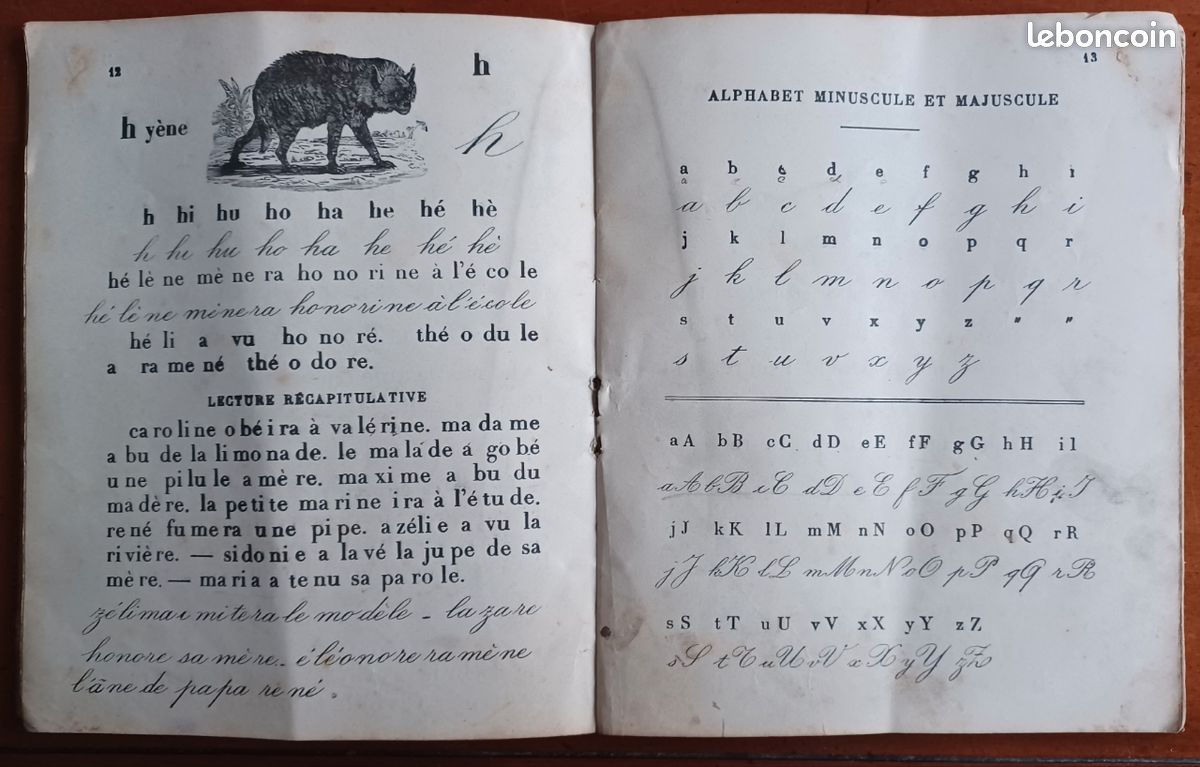 leboncoin
12
h
h yène
h
h hi hu ho ha he hé hè
h hi hu ho ha he hé hè
hé lè ne mè ne ra ho no ri ne à l'é co le
hé lè ne mènera honorine à l'école
hé li a vu ho no ré. thé o du le
a ra me né thé o do re.
LECTURE RÉCAPITULATIVE
caroline obéira à valérine. madame
a bu de la limonade. le malade a gobé
une pilule amère. maxime a bu du
madère. la petite marine ira à l'étude.
rené fumera une pipe. azélie a vu la
rivière. — sidonie a lavé la jupe de sa
mère. — maria a tenu sa parole.
zélima imitera le modèle - lazare
honore sa mère. éléonore ramène
l'âne de papa rené.
13
ALPHABET MINUSCULE ET MAJUSCULE
a b c d e f g h i
a b c d e f g h i
j k l m n o p q r
j k l m n o p q r
s t u v x y z " "
s t u v x y z
aA bB cC dD eE fF gG hH iI
aA bB cC dD eE fF gG hH iI
jJ kK lL mM nN oO pP qQ rR
jJ kK lL mM nN oO pP qQ rR
sS tT uU vV xX yY zZ
sS tT uU vV xX yY zZ